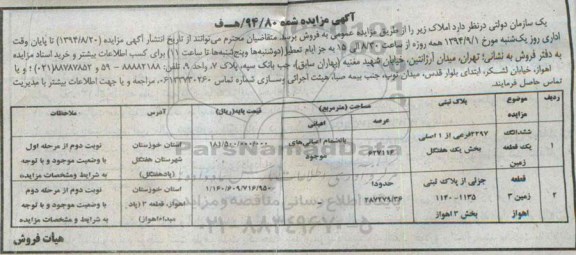 آگهی مزایده شمه ۹۴/۸۰/هـف
یک سازمان دولتی درنظر دارد املاک زیر را از طریق مزایده عمومی به فروش برسد. متقاضیان محترم می‌توانند از تاریخ انتشار آگهی مزایده (۱۳۹۴/۸/۲۰) تا پایان وقت
اداری روز یک‌شنبه مورخ ۱۳۹۴/۹/۱ همه روزه از ساعت ۸/۲۰ الی ۱۵ به جز ایام تعطیل (دوشنبه‌ها وپنج‌شنبه‌ها تا ساعت ۱۱) برای کسب اطلاعات بیشتر و خرید اسناد مزایده
به دفتر فروش به نشانی: تهران، میدان آرژانتین، خیابان شهید مغنیه (بهاران سابق)، جنب بانک سپه، پلاک ۷، واحد ۹، تلفن: ۸۸۸۸۲۱۸۸ – ۵۹ و ۸۸۷۸۷۸۵۲(۰۲۱) ؛ و یا
اهواز، خیابان لشکر، ابتدای بلوار قدس، میدان توپ، جنب بیمه صبا، هیئت اجرائی وسازی شماره تماس ۰۶۱۳۳۷۳۰۲۶۰ مراجعه و یا جهت اطلاعات بیشتر با مدیریت
تماس حاصل فرمایند.
ردیف موضوع مزایده پلاک ثبتی مساحت (مترمربع) قیمت پایه(ریال) آدرس ملاحظات
عرصه اعیانی
۱ ششدانگ یک قطعه زمین ۲۲۹۷فرعی از ۱ اصلی بخش یک هفتگل ۶۲۷۱۱۴ بانضمام اعیانی‌های موجود ۱۸/۵۰۰/۰۰۰/۰۰۰ استان خوزستان شهرستان هفتگل (پادهفتگل) نوبت دوم از مرحله اول با وضعیت موجود و با توجه به شرایط ومشخصات مزایده
۲ قطعه زمین ۳ اهواز جزئی از پلاک ثبتی ۱۱۳۵-۱۱۴۰ بخش ۳ اهواز حدوداً ۲۸۷۲۷۹/۳۶ – ۱/۱۶۰/۶۰۹/۷۱۶/۹۵۰ استان خوزستان اهواز، قطعه ۳ (پاد میداهواز) نوبت دوم از مرحله دوم با وضعیت موجود و با توجه به شرایط و مشخصات مزایده
هیأت فروش
ParsNamadData
۰۲۱-۸۸۳۴۹۶۷۰-۵